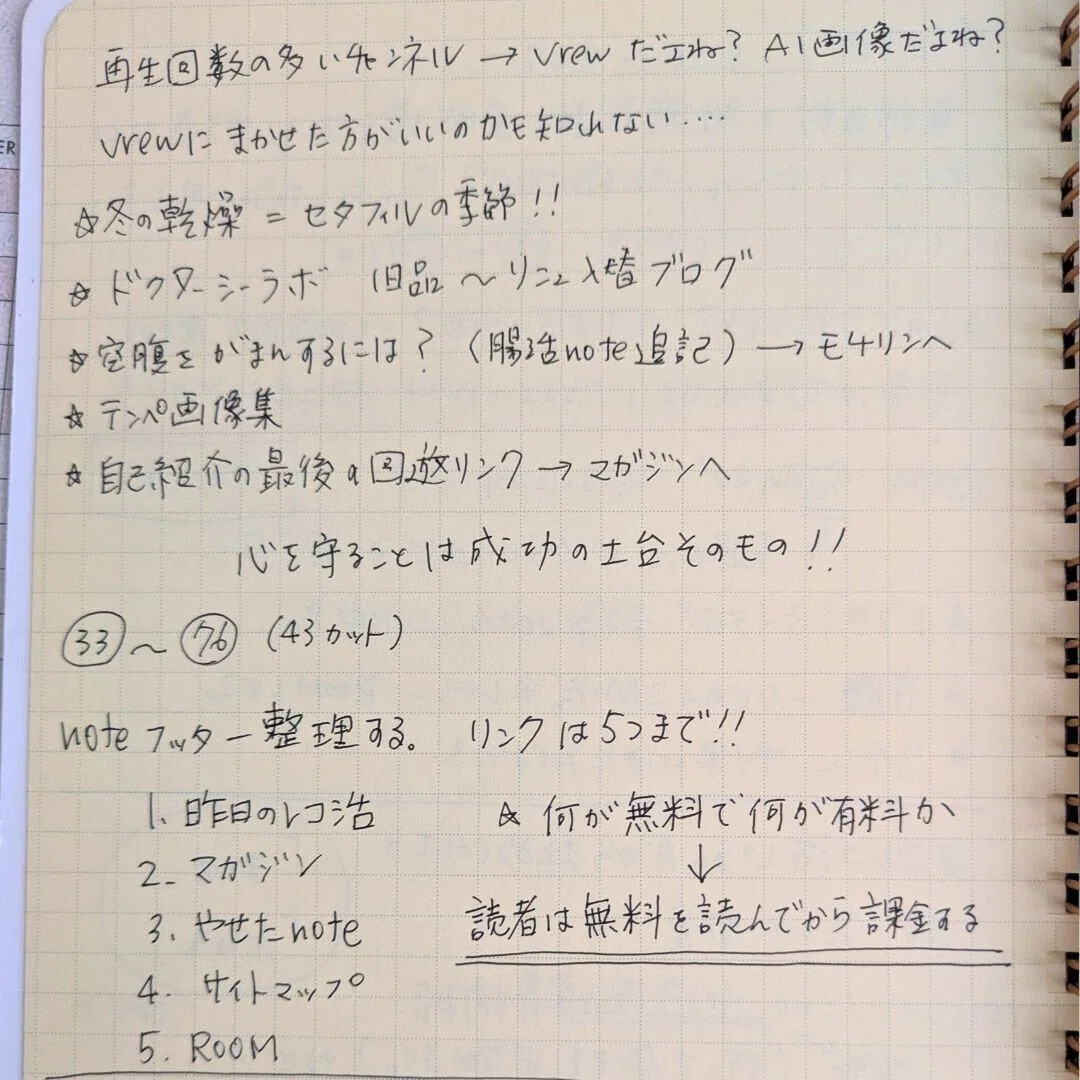 再生回数の多いチャンネル → Vrew だよね? AI画像だよね?
Vrewに まかせた方がいいのかも知れない....
☆冬の乾燥 = セタフィルの季節!!
☆ドクターシーラボ 旧品〜リニュ入替ブログ
☆空腹をがまんするには? (腸活note追記) → モチリンへ
☆テンペ画像集
☆自己紹介の最後の回遊リンク → マガジンへ
心を守ることは成功の土台そのもの!!
㉝〜㊻ (43カット)
noteフッター整理する。 リンクは5つまで!!
1. 昨日のレコ活
2. マガジン
3. やせたnote
4. サイトマップ
5. ROOM
☆ 何が無料で何が有料か
↓
読者は無料を読んでから課金する
ER